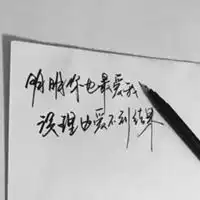 明明你也最爱我
没理由爱不到结果